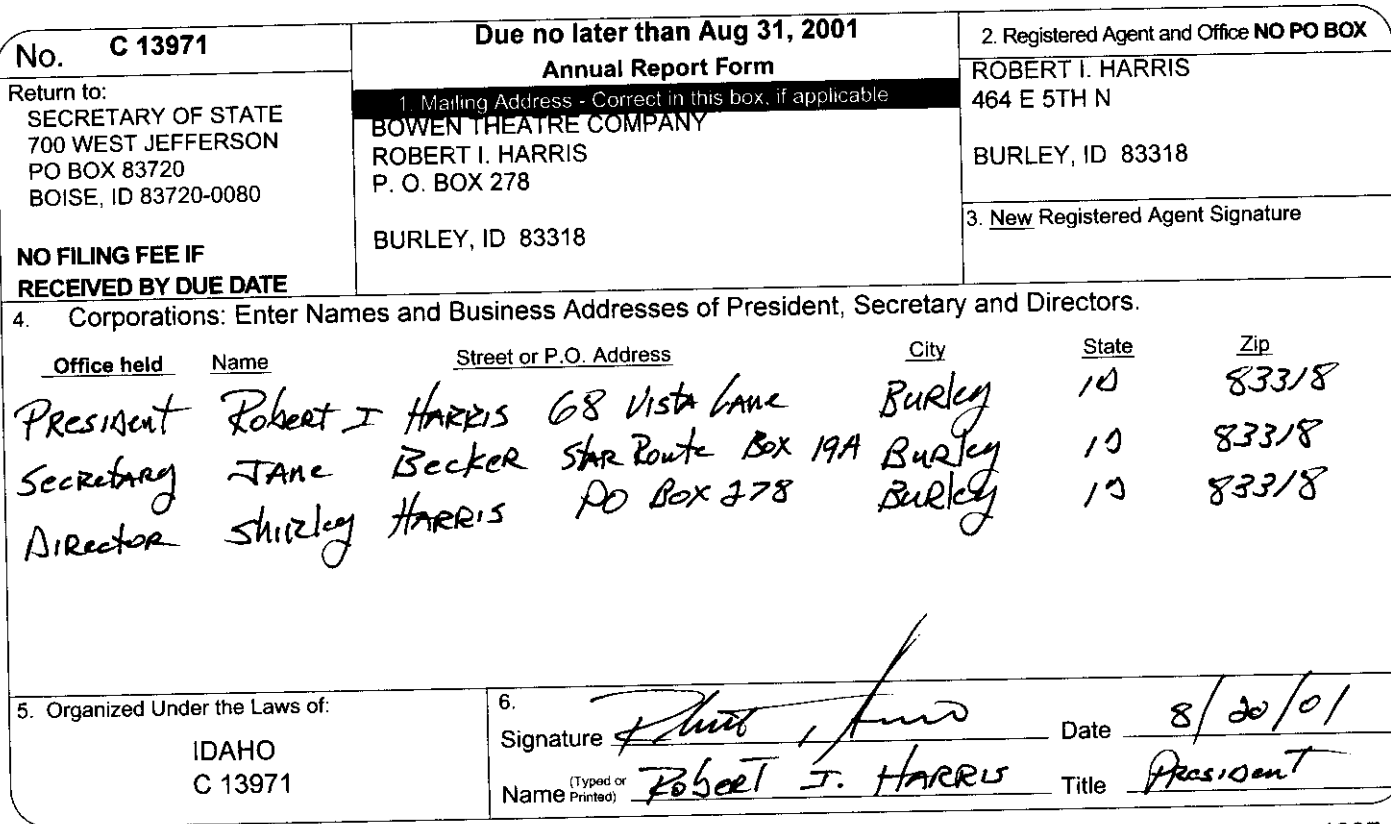 No. C 13971
Return to:
SECRETARY OF STATE
700 WEST JEFFERSON
PO BOX 83720
BOISE, ID 83720-0080
NO FILING FEE IF
RECEIVED BY DUE DATE
Due no later than Aug 31, 2001
Annual Report Form
1. Mailing Address - Correct in this box, if applicable
BOWEN THEATRE COMPANY
ROBERT I. HARRIS
P. O. BOX 278
BURLEY, ID 83318
2. Registered Agent and Office NO PO BOX
ROBERT I. HARRIS
464 E 5TH N
BURLEY, ID 83318
3. New Registered Agent Signature
4. Corporations: Enter Names and Business Addresses of President, Secretary and Directors.
Office held Name Street or P.O. Address City State Zip
President Robert I HARRIS 68 Vista Lane Burley ID 83318
Secretary JANE Becker Star Route Box 19A Burley ID 83318
Director Shirley HARRIS PO Box 278 Burley ID 83318
5. Organized Under the Laws of:
IDAHO
C 13971
6.
Signature Date 8/20/01
Name (Typed or Printed) Robert I. HARRIS Title President